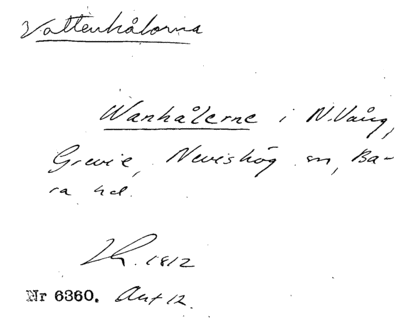 Vattenhålorna
Wanhålerne i N. Vång,
Grevie, Nevishög sn, Ba-
ra hd.
1812
Nr 6360. Akt 12.